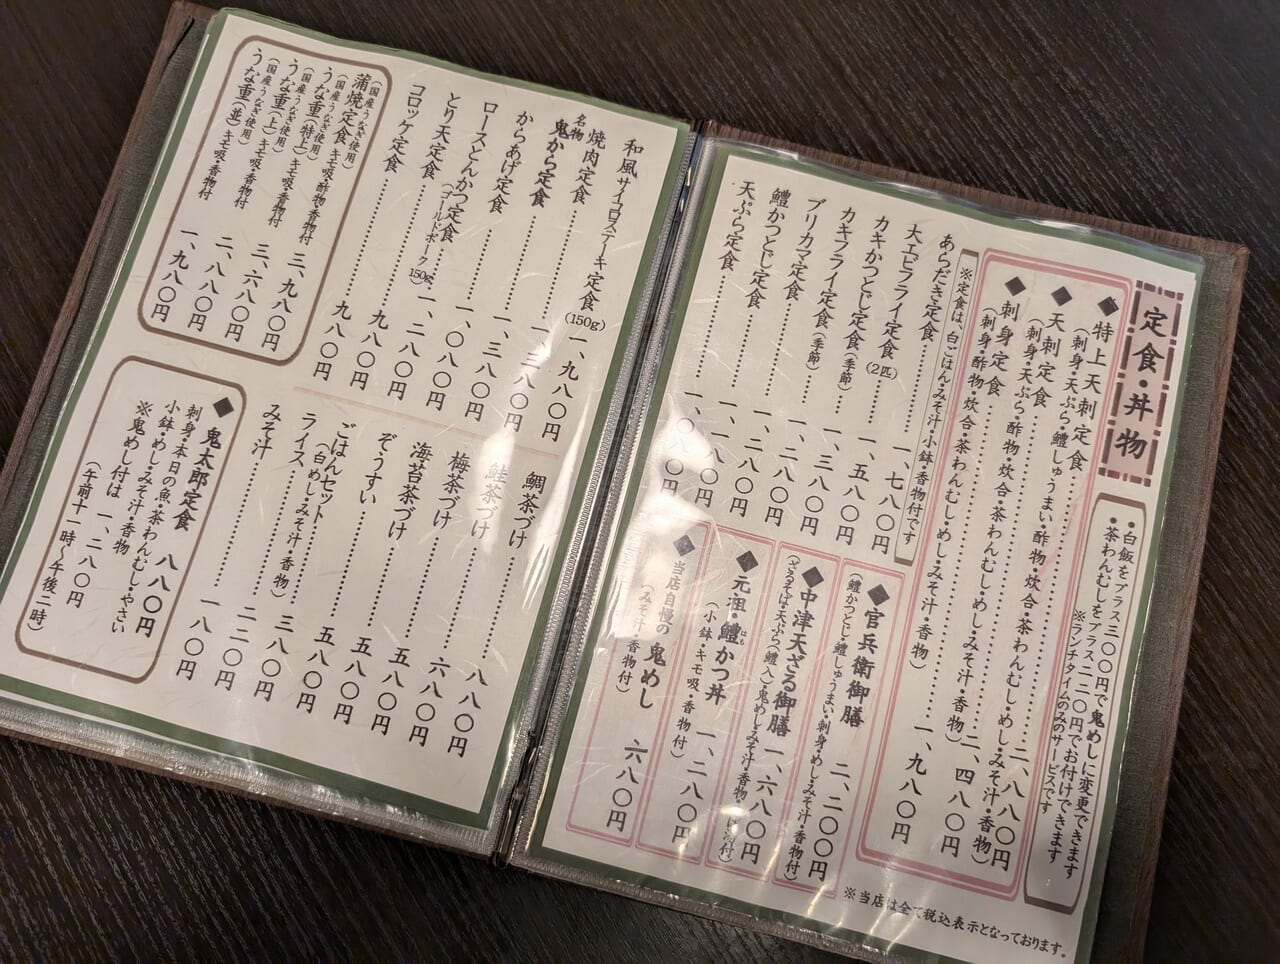 定食・丼物
・白飯をプラス三〇〇円で鬼めしに変更できます
・茶わんむしをプラス一二〇円でお付けできます
※ランチタイムのみのサービスです
◆特上天刺定食 二、八八〇円
(刺身・天ぷら・鱧しゅうまい・酢物・炊合・茶わんむし・めし・みそ汁・香物)
◆天刺定食 二、四八〇円
(刺身・天ぷら・酢物・炊合・茶わんむし・めし・みそ汁・香物)
◆刺身定食 一、九八〇円
(刺身・酢物・炊合・茶わんむし・めし・みそ汁・香物)
※定食は、白ごはん・みそ汁・小鉢・香物付です
あらだき定食 一、七八〇円
大エビフライ定食(2匹) 一、五八〇円
カキかつとじ定食(季節) 一、三八〇円
カキフライ定食(季節) 一、二八〇円
ブリカマ定食 一、二八〇円
鱧かつとじ定食 一、一八〇円
天ぷら定食 一、〇八〇円
◆官兵衛御膳 二、二〇〇円
(鱧かつとじ・鱧しゅうまい・刺身・めし・みそ汁・香物付)
◆中津天ざる御膳 一、六八〇円
(ざるそば・天ぷら(鱧入)・鬼めし・みそ汁・香物
◆元祖・鱧かつ丼 一、二八〇円
はも
(小鉢・キモ吸・香物付)
◆当店自慢の鬼めし 六八〇円
(みそ汁・香物付)
※当店は全て税込表示となっております。
和風サイコロステーキ定食(150g) 一、九八〇円
焼肉定食 一、三八〇円
名物 鬼から定食
からあげ定食 一、〇八〇円
ロースとんかつ定食 一、二八〇円
(ゴールドポーク150g)
とり天定食 九八〇円
コロッケ定食 九八〇円
鯛茶づけ 八八〇円
鮭茶づけ 六八〇円
梅茶づけ 五八〇円
海苔茶づけ 五八〇円
ぞうすい 五八〇円
ごはんセット 三八〇円
(白めし・みそ汁・香物)
ライス 二二〇円
みそ汁 一八〇円
(国産うなぎ使用)
蒲焼定食 キモ吸・酢物・香物付 三、九八〇円
(国産うなぎ使用)
うな重(特上) キモ吸・香物付 三、六八〇円
(国産うなぎ使用)
うな重(上) キモ吸・香物付 二、八八〇円
(国産うなぎ使用)
うな重(並) キモ吸・香物付 一、九八〇円
◆鬼太郎定食 八八〇円
刺身・本日の魚・茶わんむし・やさい
小鉢・めし・みそ汁・香物
※鬼めし付は 一、二八〇円
(午前十一時〜午後二時)